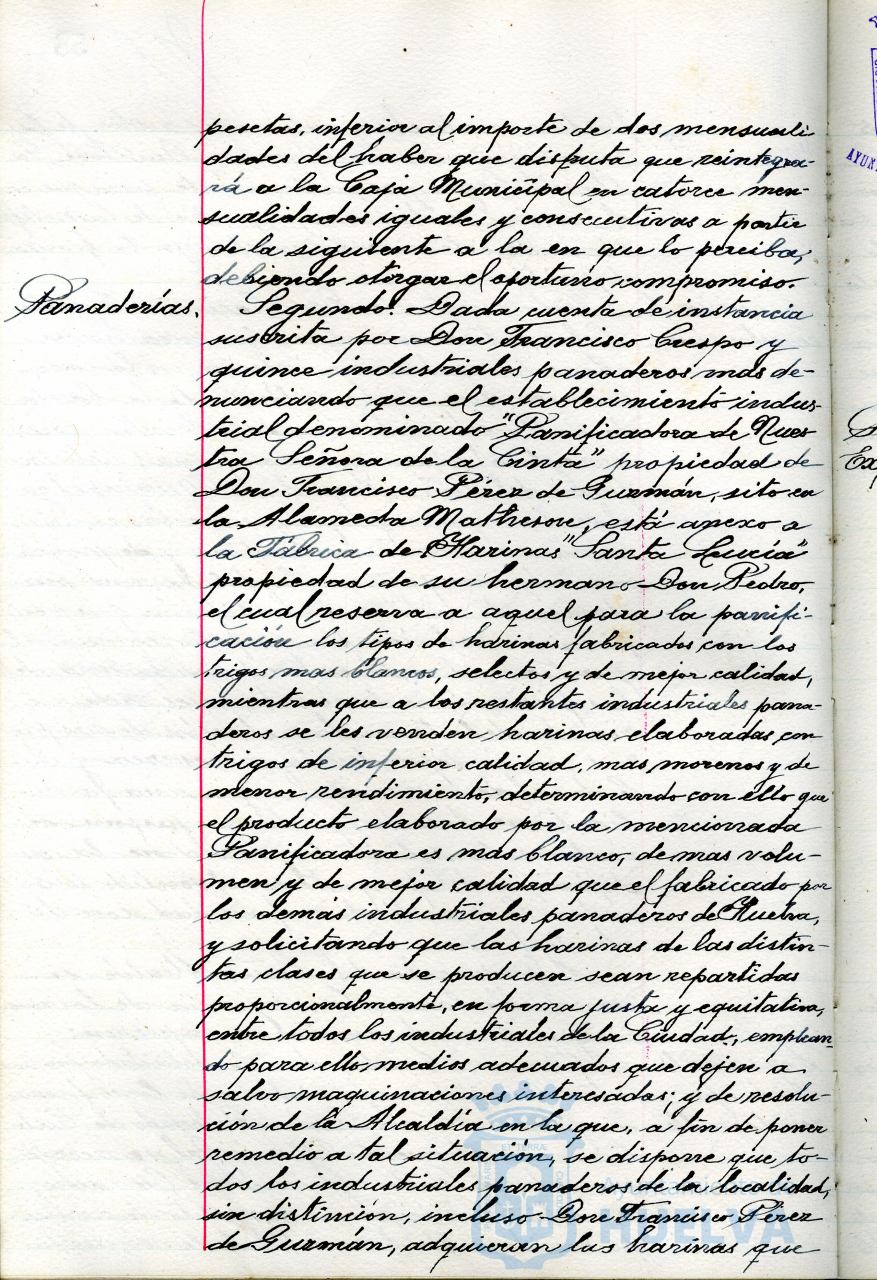 pesetas, inferior al importe de dos mensuali
dades del haber que disputa que reintegra-
rá a la Caja Municipal en catorce men-
sualidades iguales y consecutivas a partir
de la siguiente a la en que lo perciba,
debiendo otorgar el oportuno compromiso.
Panaderías.
Segundo. Dada cuenta de instancia
suscrita por Don Francisco Crespo y
quince industriales panaderos mas de-
nunciando que el establecimiento indus-
trial denóminado "Panificadora de Nues
tra Señora de la Cinta" propiedad de
Don Francisco Pérez de Guzmán, sito en
la Alameda Matheson, está anexo a
la Fábrica de Harinas "Santa Lucía"
propiedad de su hermano Don Pedro,
el cual reserva a aquel para la panifi-
cación los tipos de harinas fabricados con los
trigos mas blancos, selectos y de mejor calidad,
mientras que a los restantes industriales pana-
deros se les venden harinas elaboradas con
trigos de inferior calidad, mas morenos y de
menor rendimiento, determinando con ello que
el producto elaborado por la mencionada
Panificadora es más blanco, de mas volu-
men y de mejor calidad que el fabricado por
los demás industriales panaderos de Huelva,
y solicitando que las harinas de las distin-
tas clases que se producen sean repartidas
proporcionalmente, en forma justa y equitativa,
entre todos los industriales de la Ciudad, emplean
do para ello medios adecuados que dejen a
salvo maquinaciones interesadas; y de resolu-
ción de la Alcaldía en la que, a fin de poner
remedio a tal situación, se dispone que to-
dos los industriales panaderos de la localidad,
sin distinción, incluso Don Francisco Pérez
de Guzmán, adquieran las harinas que
HUELVA